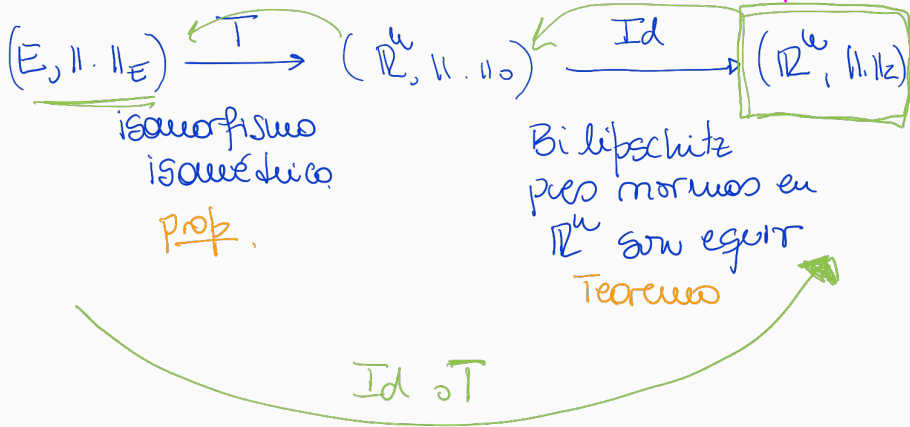 (E, ||.||_E) T→ (ℝⁿ, ||.||₀) Id→ (ℝⁿ, ||.||₂)
isomorfismo
isométrico
prop.
Bilipschitz
pues normas en
ℝⁿ son equiv
Teorema
Id ∘ T